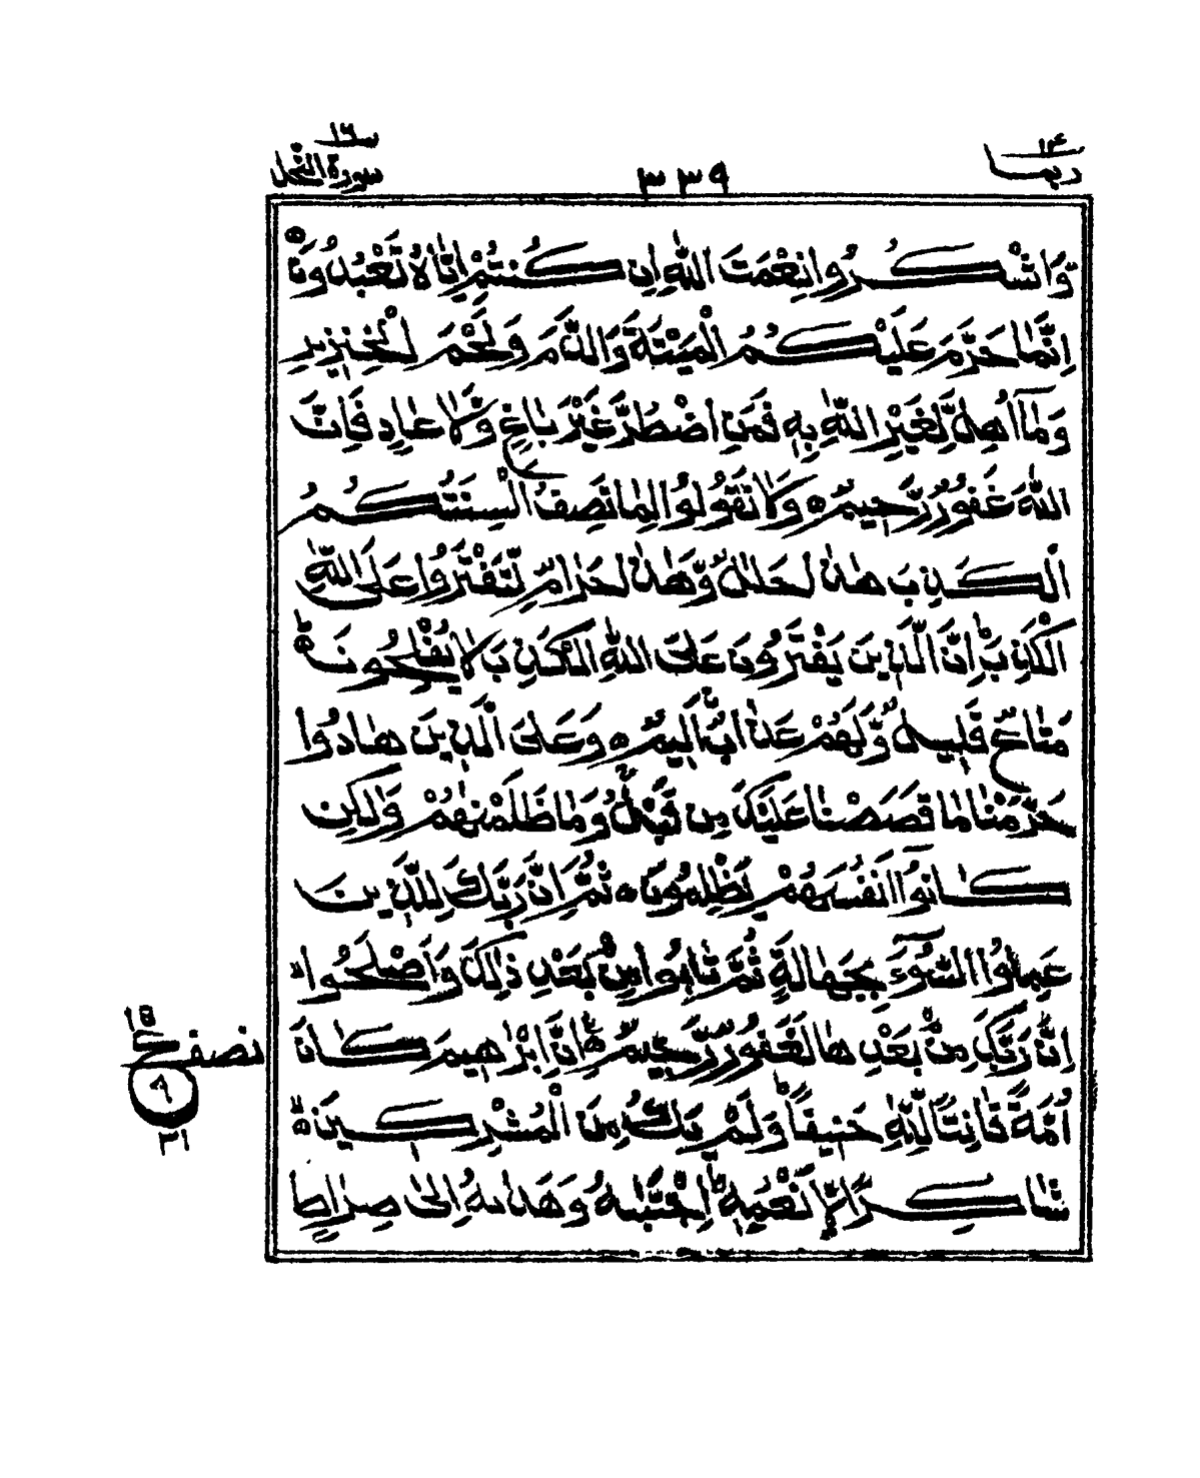 ربما ١٤
٣٣٩
سورة النحل ١٦
وَّاشْكُرُوا نِعْمَتَ اللّٰهِ اِنْ كُنْتُمْ اِيَّاهُ تَعْبُدُوْنَ ○
اِنَّمَا حَرَّمَ عَلَيْكُمُ الْمَيْتَةَ وَالدَّمَ وَلَحْمَ الْخِنْزِيْرِ
وَمَآ اُهِلَّ لِغَيْرِ اللّٰهِ بِهٖ فَمَنِ اضْطُرَّ غَيْرَ بَاغٍ وَّلَا عَادٍ فَاِنَّ
اللّٰهَ غَفُوْرٌ رَّحِيْمٌ ○ وَلَا تَقُوْلُوْا لِمَا تَصِفُ اَلْسِنَتُكُمُ
الْكَذِبَ هٰذَا حَلٰلٌ وَّهٰذَا حَرَامٌ لِّتَفْتَرُوْا عَلَى اللّٰهِ
الْكَذِبَ ؕ اِنَّ الَّذِيْنَ يَفْتَرُوْنَ عَلَى اللّٰهِ الْكَذِبَ لَا يُفْلِحُوْنَ ○ؕ
مَتَاعٌ قَلِيْلٌ وَّلَهُمْ عَذَابٌ اَلِيْمٌ ○ وَعَلَى الَّذِيْنَ هَادُوْا
حَرَّمْنَا مَا قَصَصْنَا عَلَيْكَ مِنْ قَبْلُ ۚ وَمَا ظَلَمْنٰهُمْ وَلٰكِنْ
كَانُوْٓا اَنْفُسَهُمْ يَظْلِمُوْنَ ○ ثُمَّ اِنَّ رَبَّكَ لِلَّذِيْنَ
عَمِلُوا السُّوْٓءَ بِجَهَالَةٍ ثُمَّ تَابُوْا مِنْۢ بَعْدِ ذٰلِكَ وَاَصْلَحُوْٓا ۙ
اِنَّ رَبَّكَ مِنْۢ بَعْدِهَا لَغَفُوْرٌ رَّحِيْمٌ ○ اِنَّ اِبْرٰهِيْمَ كَانَ
اُمَّةً قَانِتًا لِّلّٰهِ حَنِيْفًا ؕ وَلَمْ يَكُ مِنَ الْمُشْرِكِيْنَ ○ۙ
شَاكِرًا لِّاَنْعُمِهٖ ؕ اِجْتَبٰىهُ وَهَدٰىهُ اِلٰى صِرَاطٍ
نصف
١٥
ع
٩
٢١